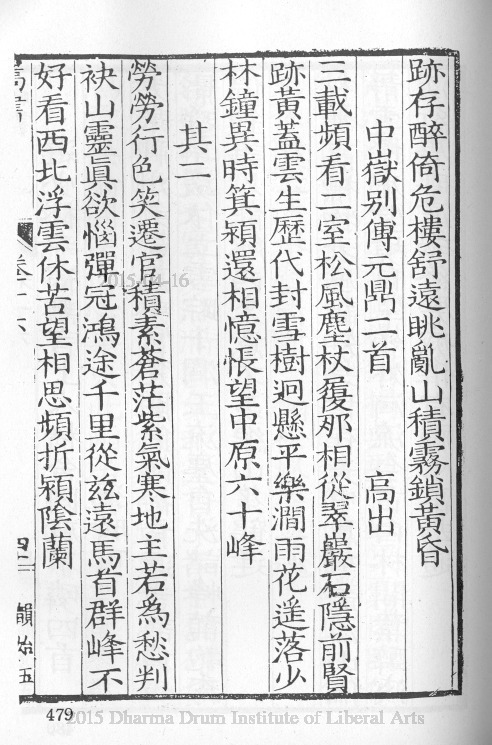 跡存醉倚危樓舒遠眺亂山積霧鎖黃昏
中嶽別傅元鼎二首 高出
三載頻看二室松風塵杖履那相從翠巖石隱前賢
跡黃蓋雲生歷代封雪樹迥懸平樂澗雨花遙落少
林鐘異時箕潁還相憶悵望中原六十峰
其二
勞勞行色笑遷官積素蒼茫紫氣寒地主若爲愁判
袂山靈眞欲惱彈冠鴻途千里從玆遠馬首群峰不
好看西北浮雲休苦望相思頻折潁陰蘭
卷十六
韻始五
479
2015-04-16
2015 Dharma Drum Institute of Liberal Arts